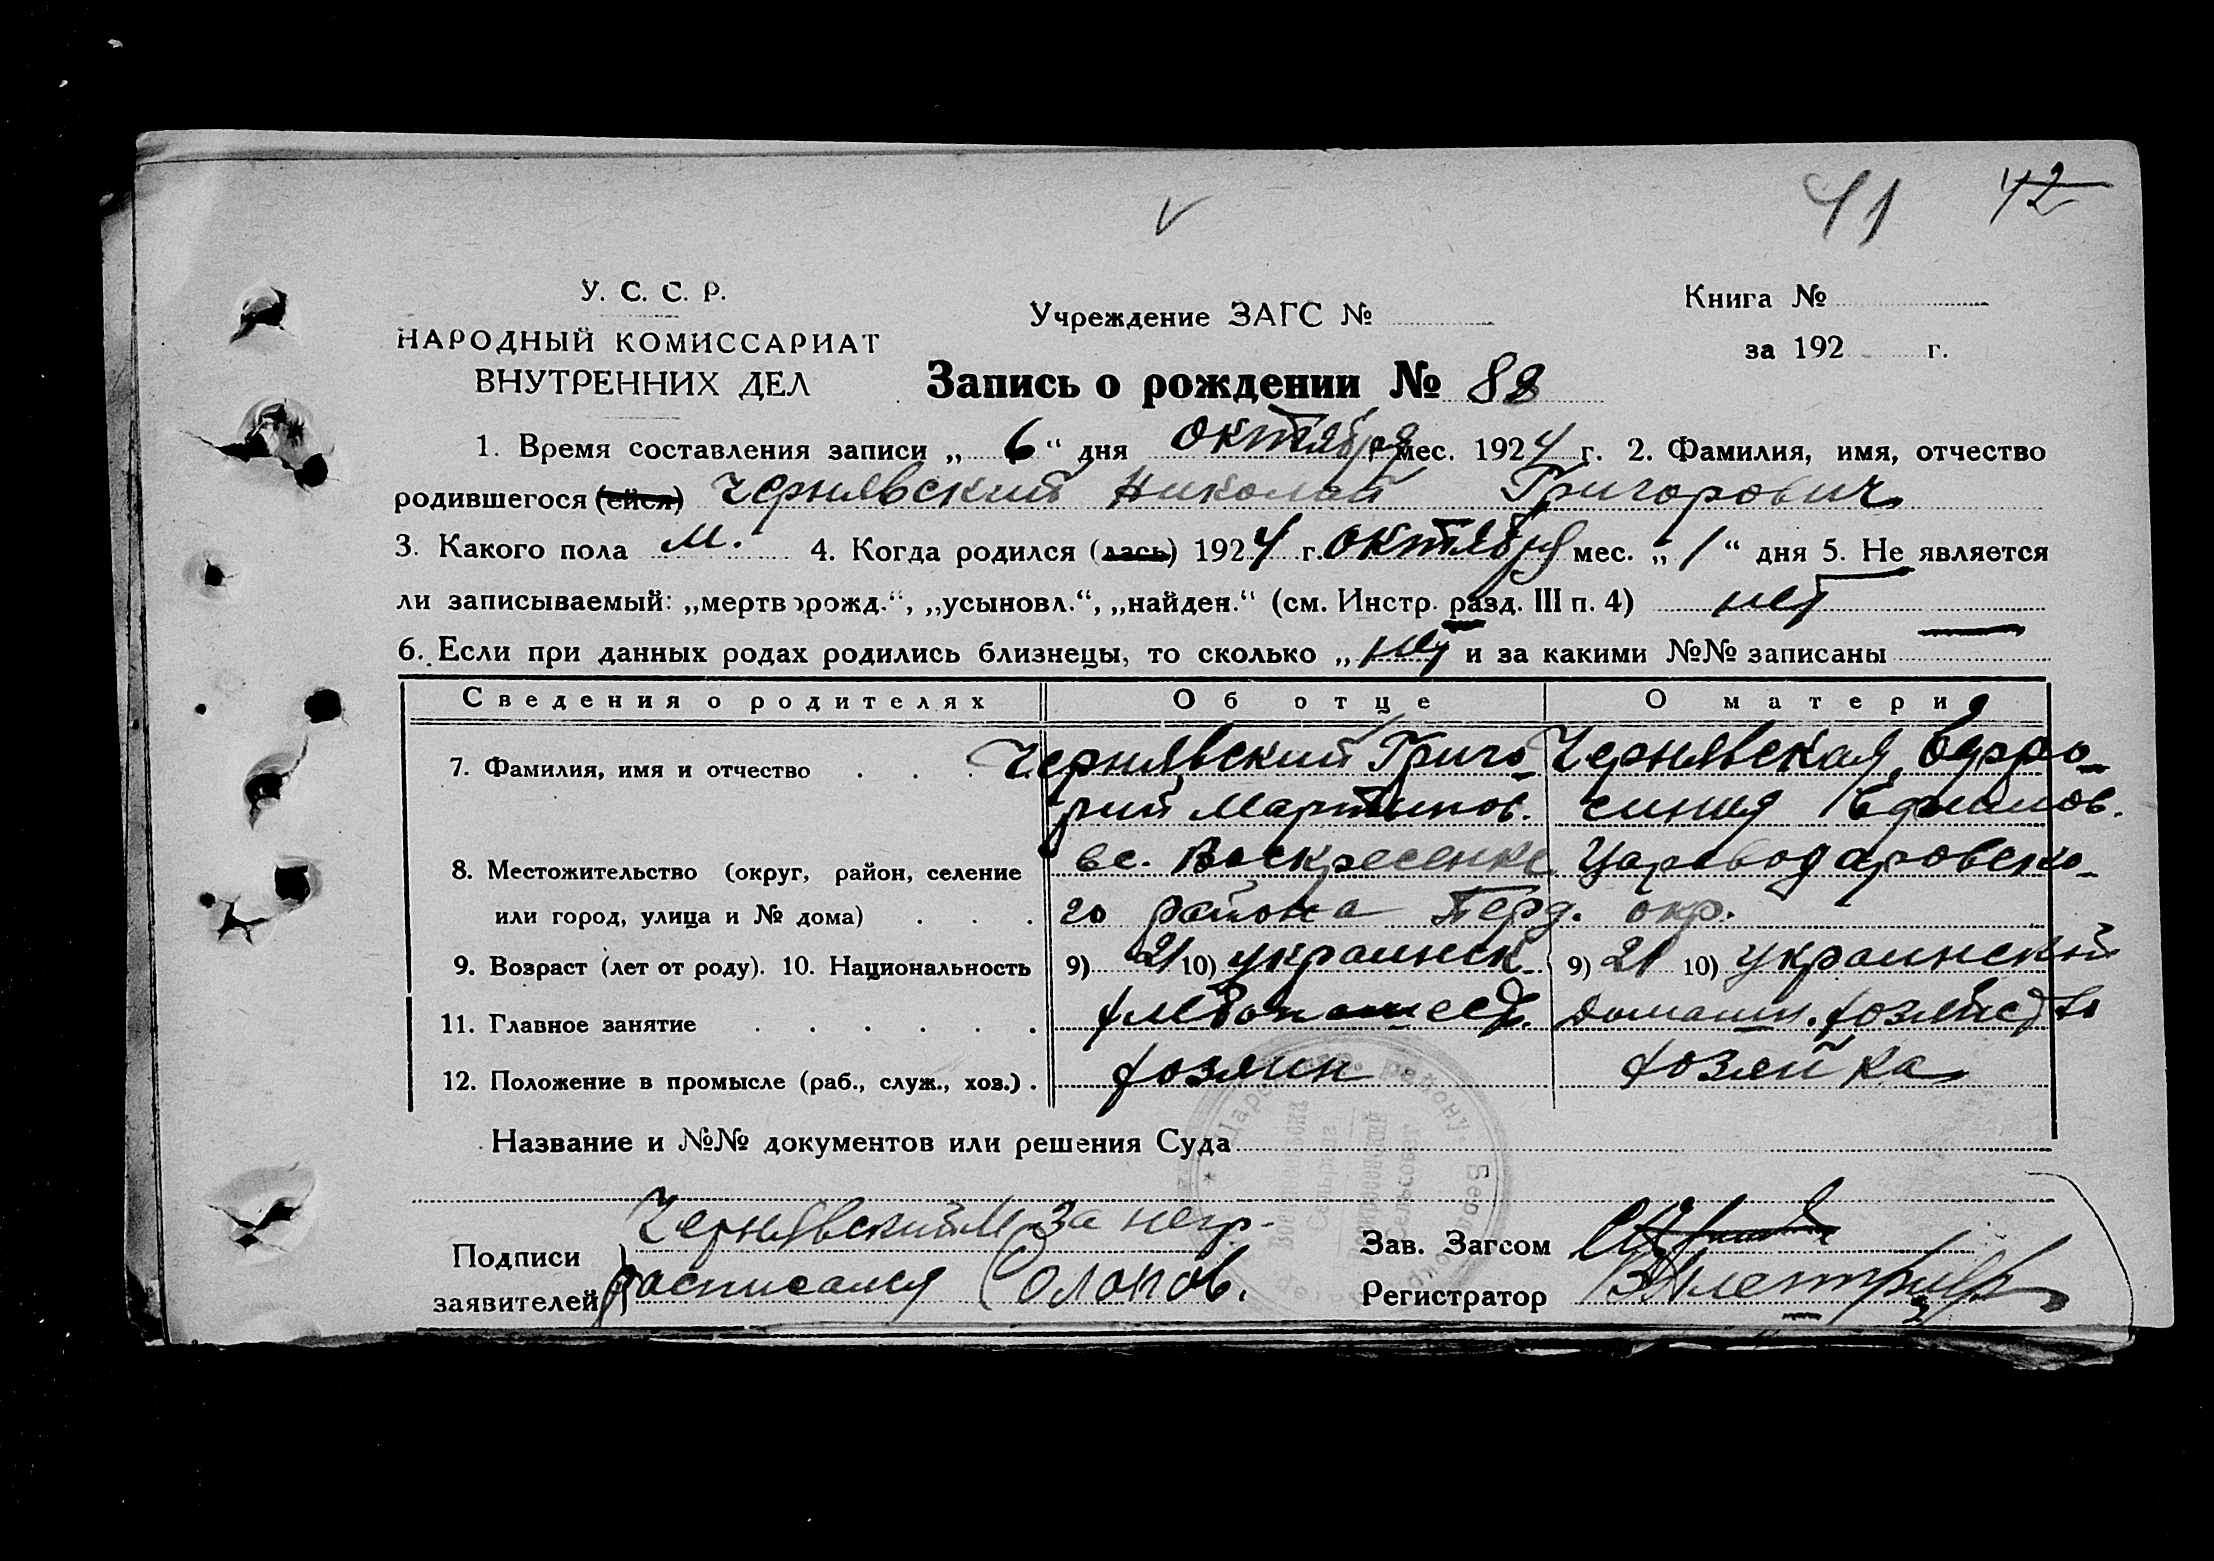 41 42
У. С. С. Р.
НАРОДНЫЙ КОМИССАРИАТ
ВНУТРЕННИХ ДЕЛ
Учреждение ЗАГС №
Книга №
за 192 г.
Запись о рождении № 88
1. Время составления записи „ 6 “ дня октября мес. 1924 г. 2. Фамилия, имя, отчество
родившегося (ейся) Чернявский Николай Григорович
3. Какого пола м. 4. Когда родился (лась) 1924 г. октября мес. „ 1 “ дня 5. Не является
ли записываемый: „мертворожд.“, „усыновл.“, „найден.“ (см. Инстр. разд. III п. 4) нет
6. Если при данных родах родились близнецы, то сколько „ нет и за какими №№ записаны
Сведения о родителях Об отце О матери
7. Фамилия, имя и отчество . . . Чернявский Григо- Чернявская Ефро-
рий Мартинов. синия Ефимов.
8. Местожительство (округ, район, селение вс. Воскресенке Цареводаровско-
или город, улица и № дома) . . . го района Берд. окр.
9. Возраст (лет от роду). 10. Национальность 9) 21 10) украинск 9) 21 10) украинской
11. Главное занятие . . . . . . хлебопашест. домашн. хозяйство
12. Положение в промысле (раб., служ., хоз.) . хозяин хозяйка
Название и №№ документов или решения Суда
Подписи заявителей
Чернявский М за негр.
расписался Солопов.
Зав. Загсом
Регистратор